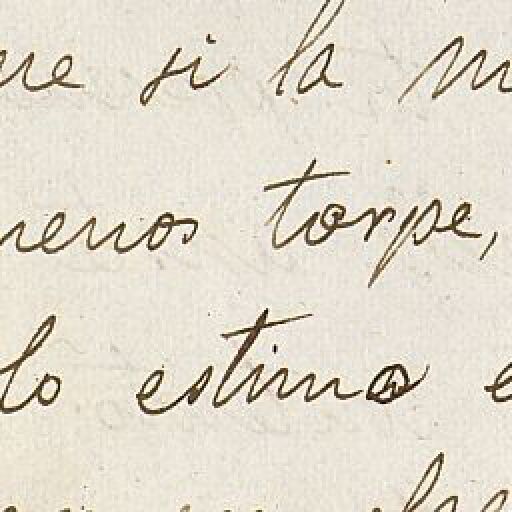 ue si la m
menos torpe,
lo estimo e